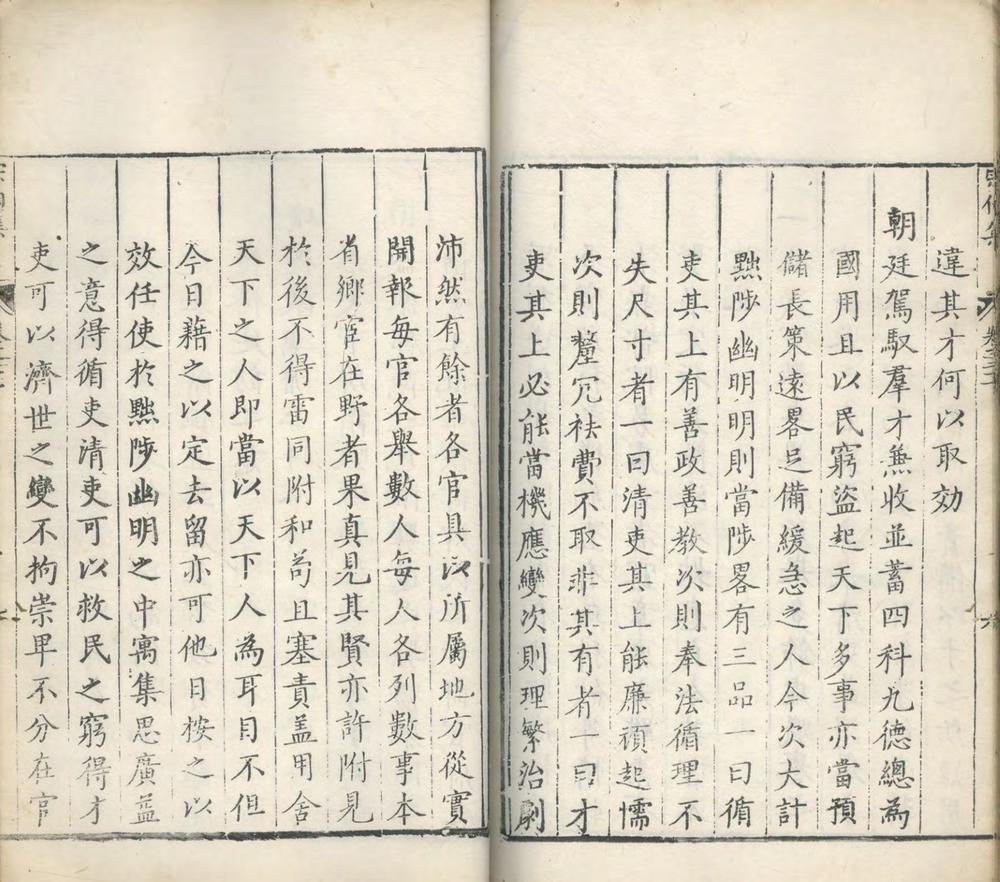 違其才何以取効
朝廷駕馭羣才無收並蓄四科九德總為
國用且以民窮盜起天下多事亦當預
儲長策遠畧足備緩急之人今次大計
黜陟幽明明則當陟畧有三品一曰循
吏其上有善政善教次則奉法循理不
失尺寸者一曰清吏其上能廉頑起懦
次則釐冗袪費不取非其有者一曰才
吏其上必能當機應變次則理繁治劇
沛然有餘者各官具以所屬地方從實
開報每官各舉數人每人各列數事本
省鄉官在野者果真見其賢亦許附見
於後不得雷同附和苟且塞責盖用舍
天下之人即當以天下人為耳目不但
今日藉之以定去留亦可他日桉之以
效任使於黜陟幽明之中寓集思廣益
之意得循吏清吏可以救民之窮得才
吏可以濟世之變不拘崇卑不分在官